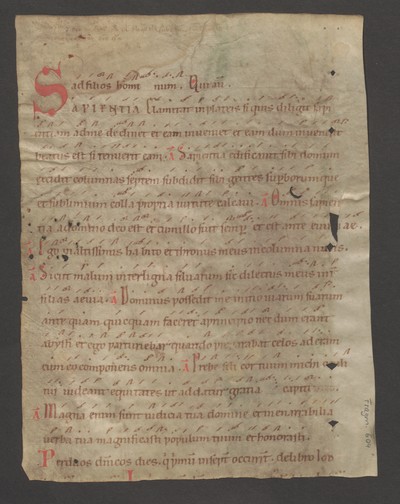 ad filios homi num. Quam
SAPIENTIA clamitat in plateis si quis diligit sapi
entiam ad me declinet et eam inveniet et eam dum invenerit
beatus est si tenuerit eam. A Sapientia edificavit sibi domum
excidit columnas septem subdidit sibi gentes superborumque
et sublimium colla propria virtute calcavi. A Omnis sapien
tia a domino deo est et cum illo fuit semp et est ante evum. ae.
A Ego in altissimis habito et thronus meus in columna nubis.
A Sicut malum inter ligna silvarum sic dilectus meus int
filias aevia. A Dominus possedit me initio viarum suarum
ante quam quicquam faceret a principio necdum erant
abissi et ego parturiebar quando preparabat celos aderam
cum eo componens omnia. A Prebe fili cor tuum michi
tui videat equitates ut addatur gratia capiti
A Magna enim sunt iudicia tua domine et inenarrabilia
verba tua magnificasti populum tuum et honorasti.
Per dies
Fragm.